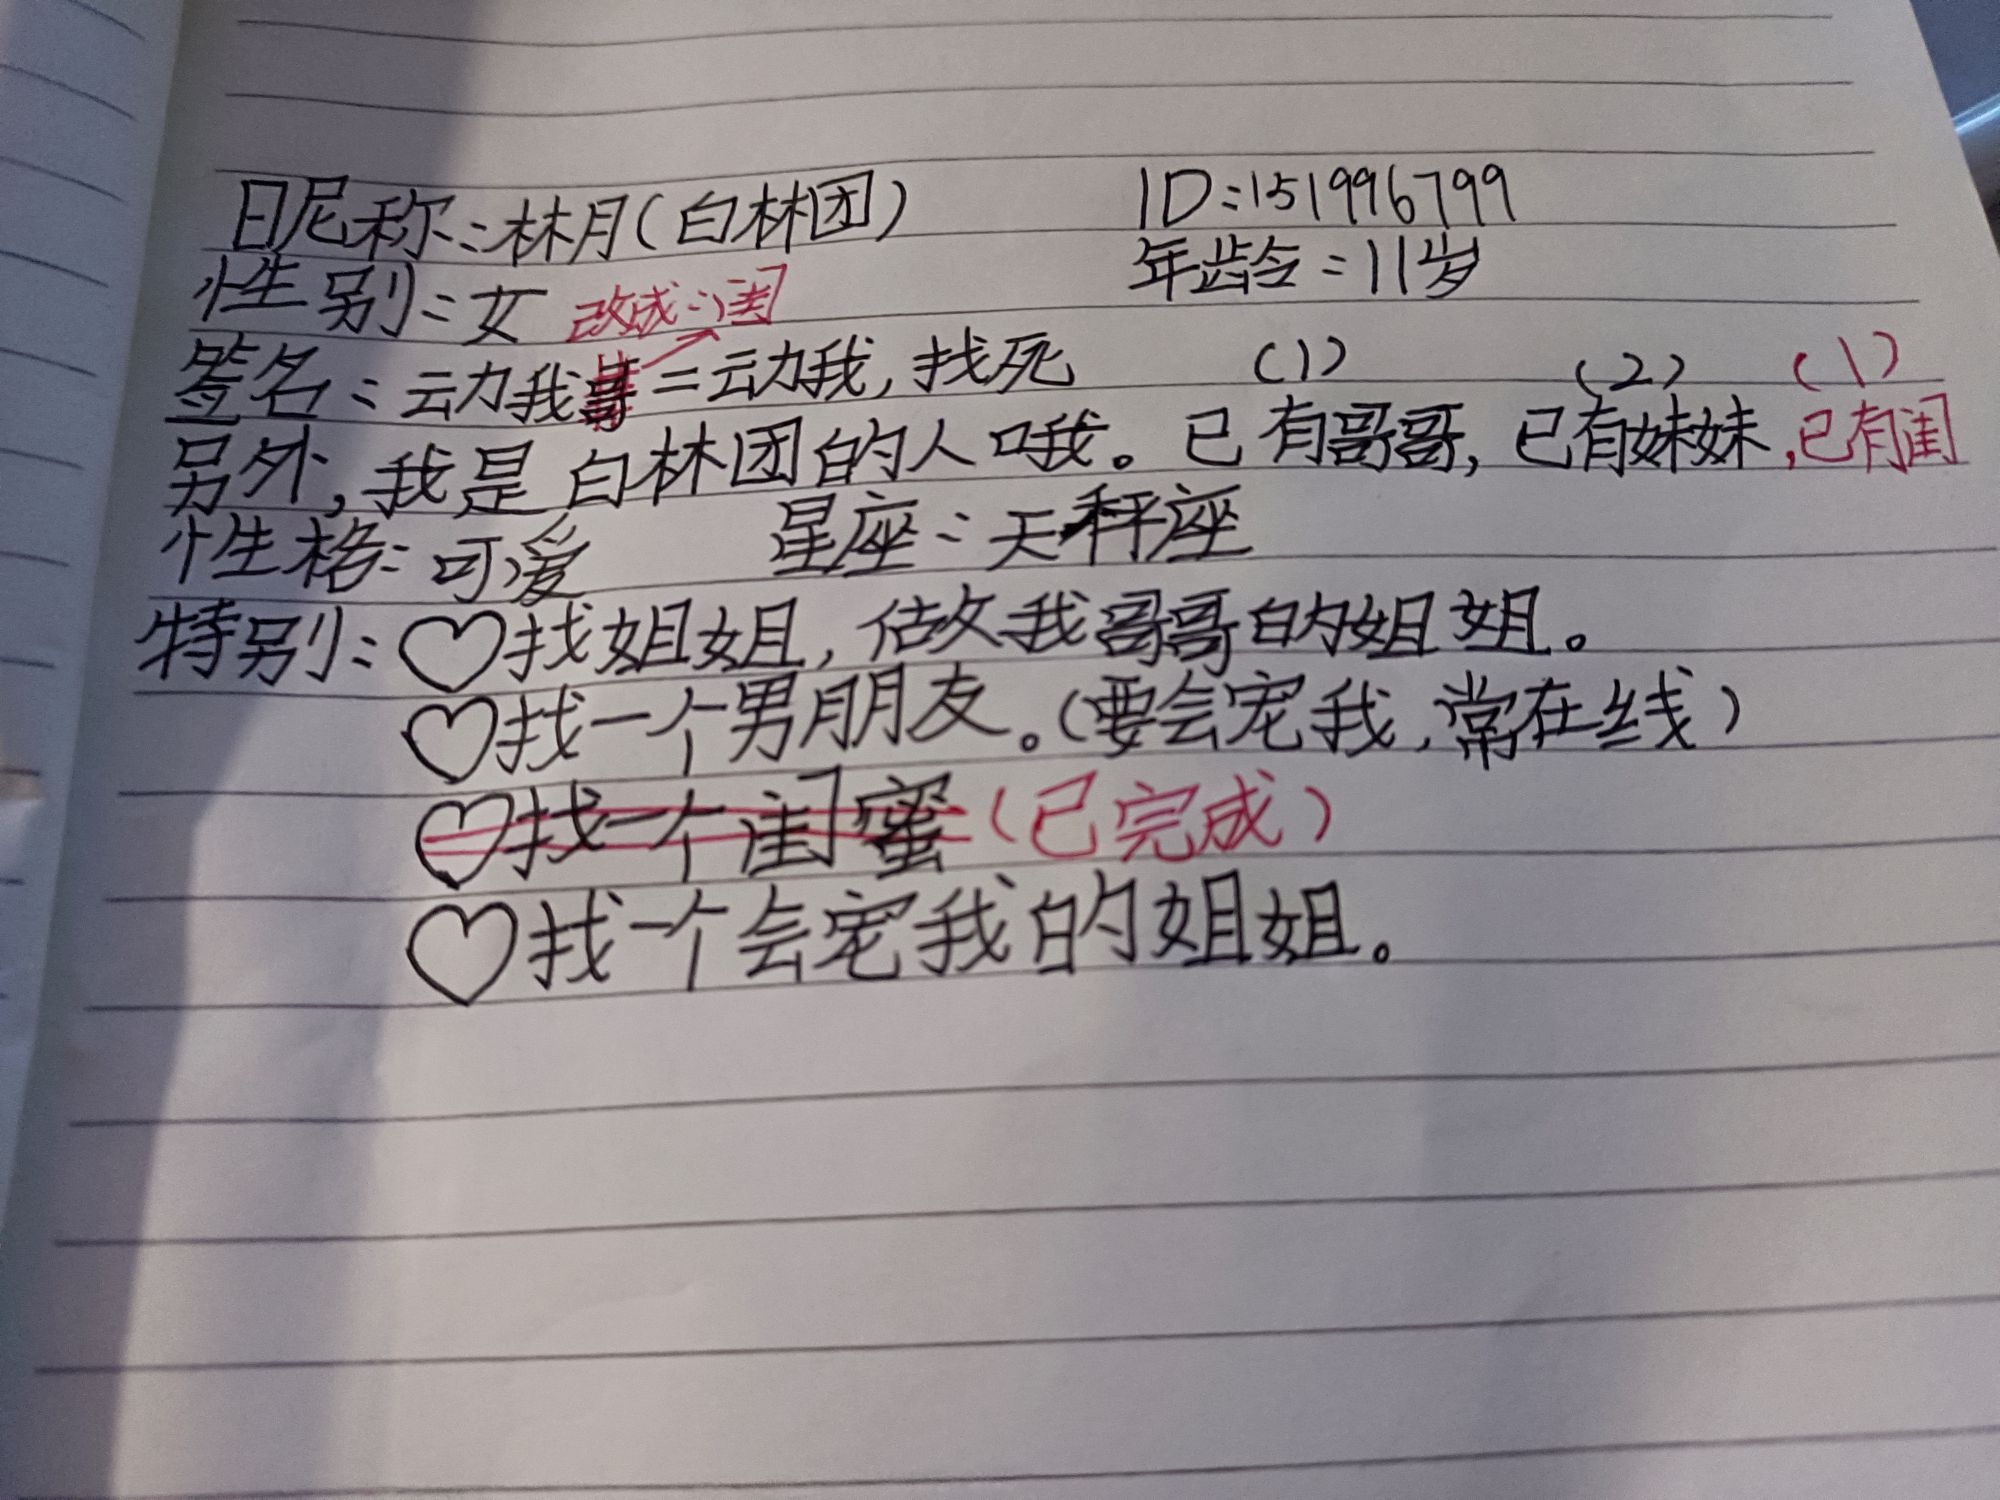 昵称：林月（白林团） ID：151996799
性别：女 年龄：11岁
改成：闺
签名：动我哥=动我，找死 （1） （2） （1）
另外，我是白林团的人哦。已有哥哥，已有妹妹，已有闺
性格：可爱 星座：天秤座
特别：♡找姐姐，做我哥哥的姐姐。
♡找一个男朋友。（要会宠我，常在线）
♡找一个闺蜜（已完成）
♡找一个会宠我的姐姐。